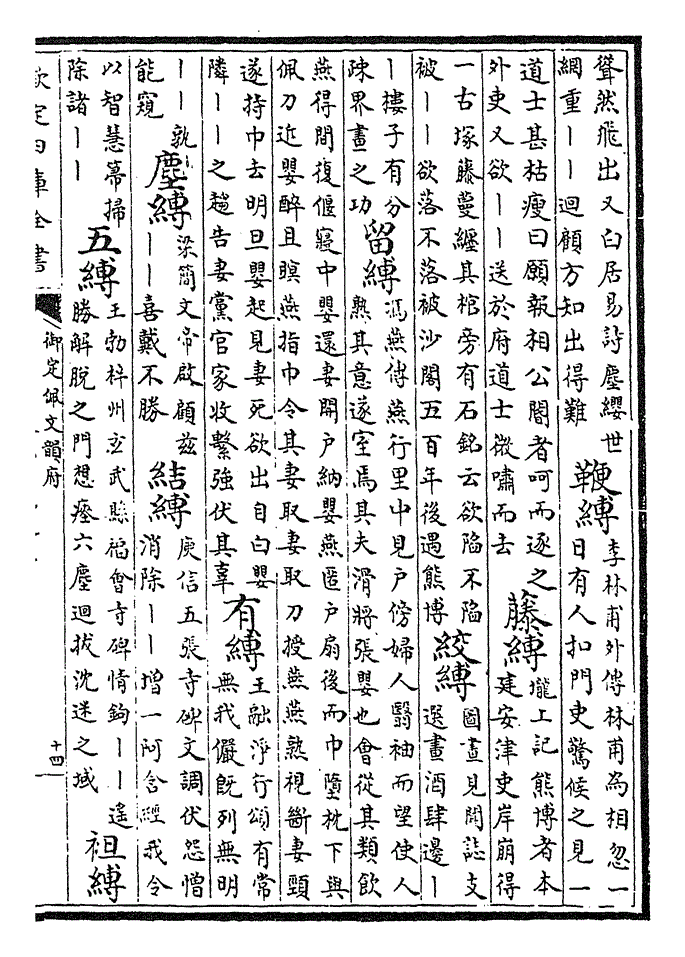 聳然飛出又白居易詩塵纓世
網重丨丨迴顧方知出得難
鞭縛
李林甫外傳林甫為相忽一
日有人扣門吏驚候之見一
道士甚枯瘦曰願報相公閽者呵而逐之
外吏又欲丨丨送於府道士微嘯而去
藤縛
壠上記熊博者本
建安津吏岸崩得
一古塚藤蔓纏其棺旁有石銘云欲陷不陷
被丨丨欲落不落被沙閣五百年後遇熊博
絞縛
圖畫見聞誌支
選畫酒肆邊丨
丨樓子有分
疎界畫之功
留縛
馮燕傳燕行里中見戶傍婦人翳袖而望使人
熟其意遂室焉其夫滑將張嬰也會從其類飲
燕得間復偃寢中嬰還妻開戶納嬰燕匿戶扇後而巾墮枕下與
佩刀近嬰醉且瞑燕指巾令其妻取妻取刀授燕燕熟視斷妻頸
遂持巾去明旦嬰起見妻死欲出自白嬰
隣丨丨之趨告妻黨官家收繫強伏其辜
有縛
王融淨行頌有常
無我儼既列無明
丨丨孰
能窺
塵縛
梁簡文帝啟顧茲
丨丨喜戴不勝
結縛
庾信五張寺碑文調伏怨憎
消除丨丨增一阿含經我令
以智慧箒掃
除諸丨丨
五縛
王勃梓州玄武縣福會寺碑情鉤丨丨遙
勝解脫之門想瘞六塵迴拔沈迷之域
袒縛
欽定四庫全書
御定佩文韻府
十四